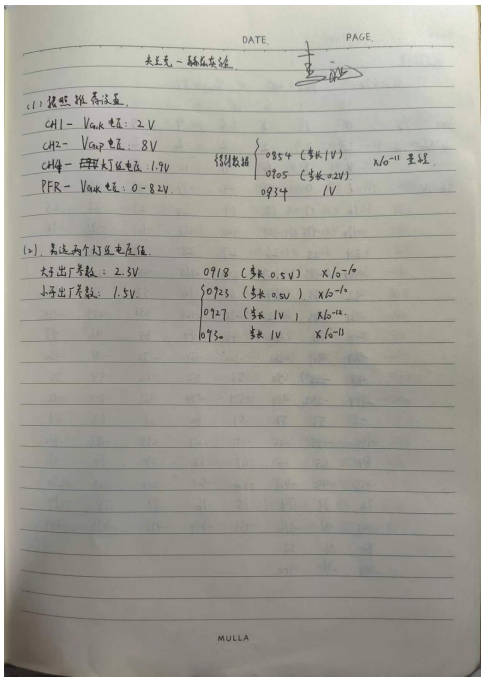 DATE. PAGE.
夫兰克-赫兹实验
(1) 按照推荐设置
CH1- VG1K 电压: 2V
CH2- VG2P 电压: 8V
CH4- 灯丝电压: 1.9V
PFR- VG2K 电压: 0-82V
得到数据
0854 (步长1V)
0905 (步长0.2V)
0934 1V
X10⁻¹¹ 量程
(2). 另选两个灯丝电压值
大于出厂参数: 2.3V 0918 (步长 0.5V) X10⁻¹⁰
小于出厂参数: 1.5V. 0923 (步长 0.5V) X10⁻¹⁰
0927 (步长 1V) X10⁻¹²
0930 步长 1V X10⁻¹¹
MULLA